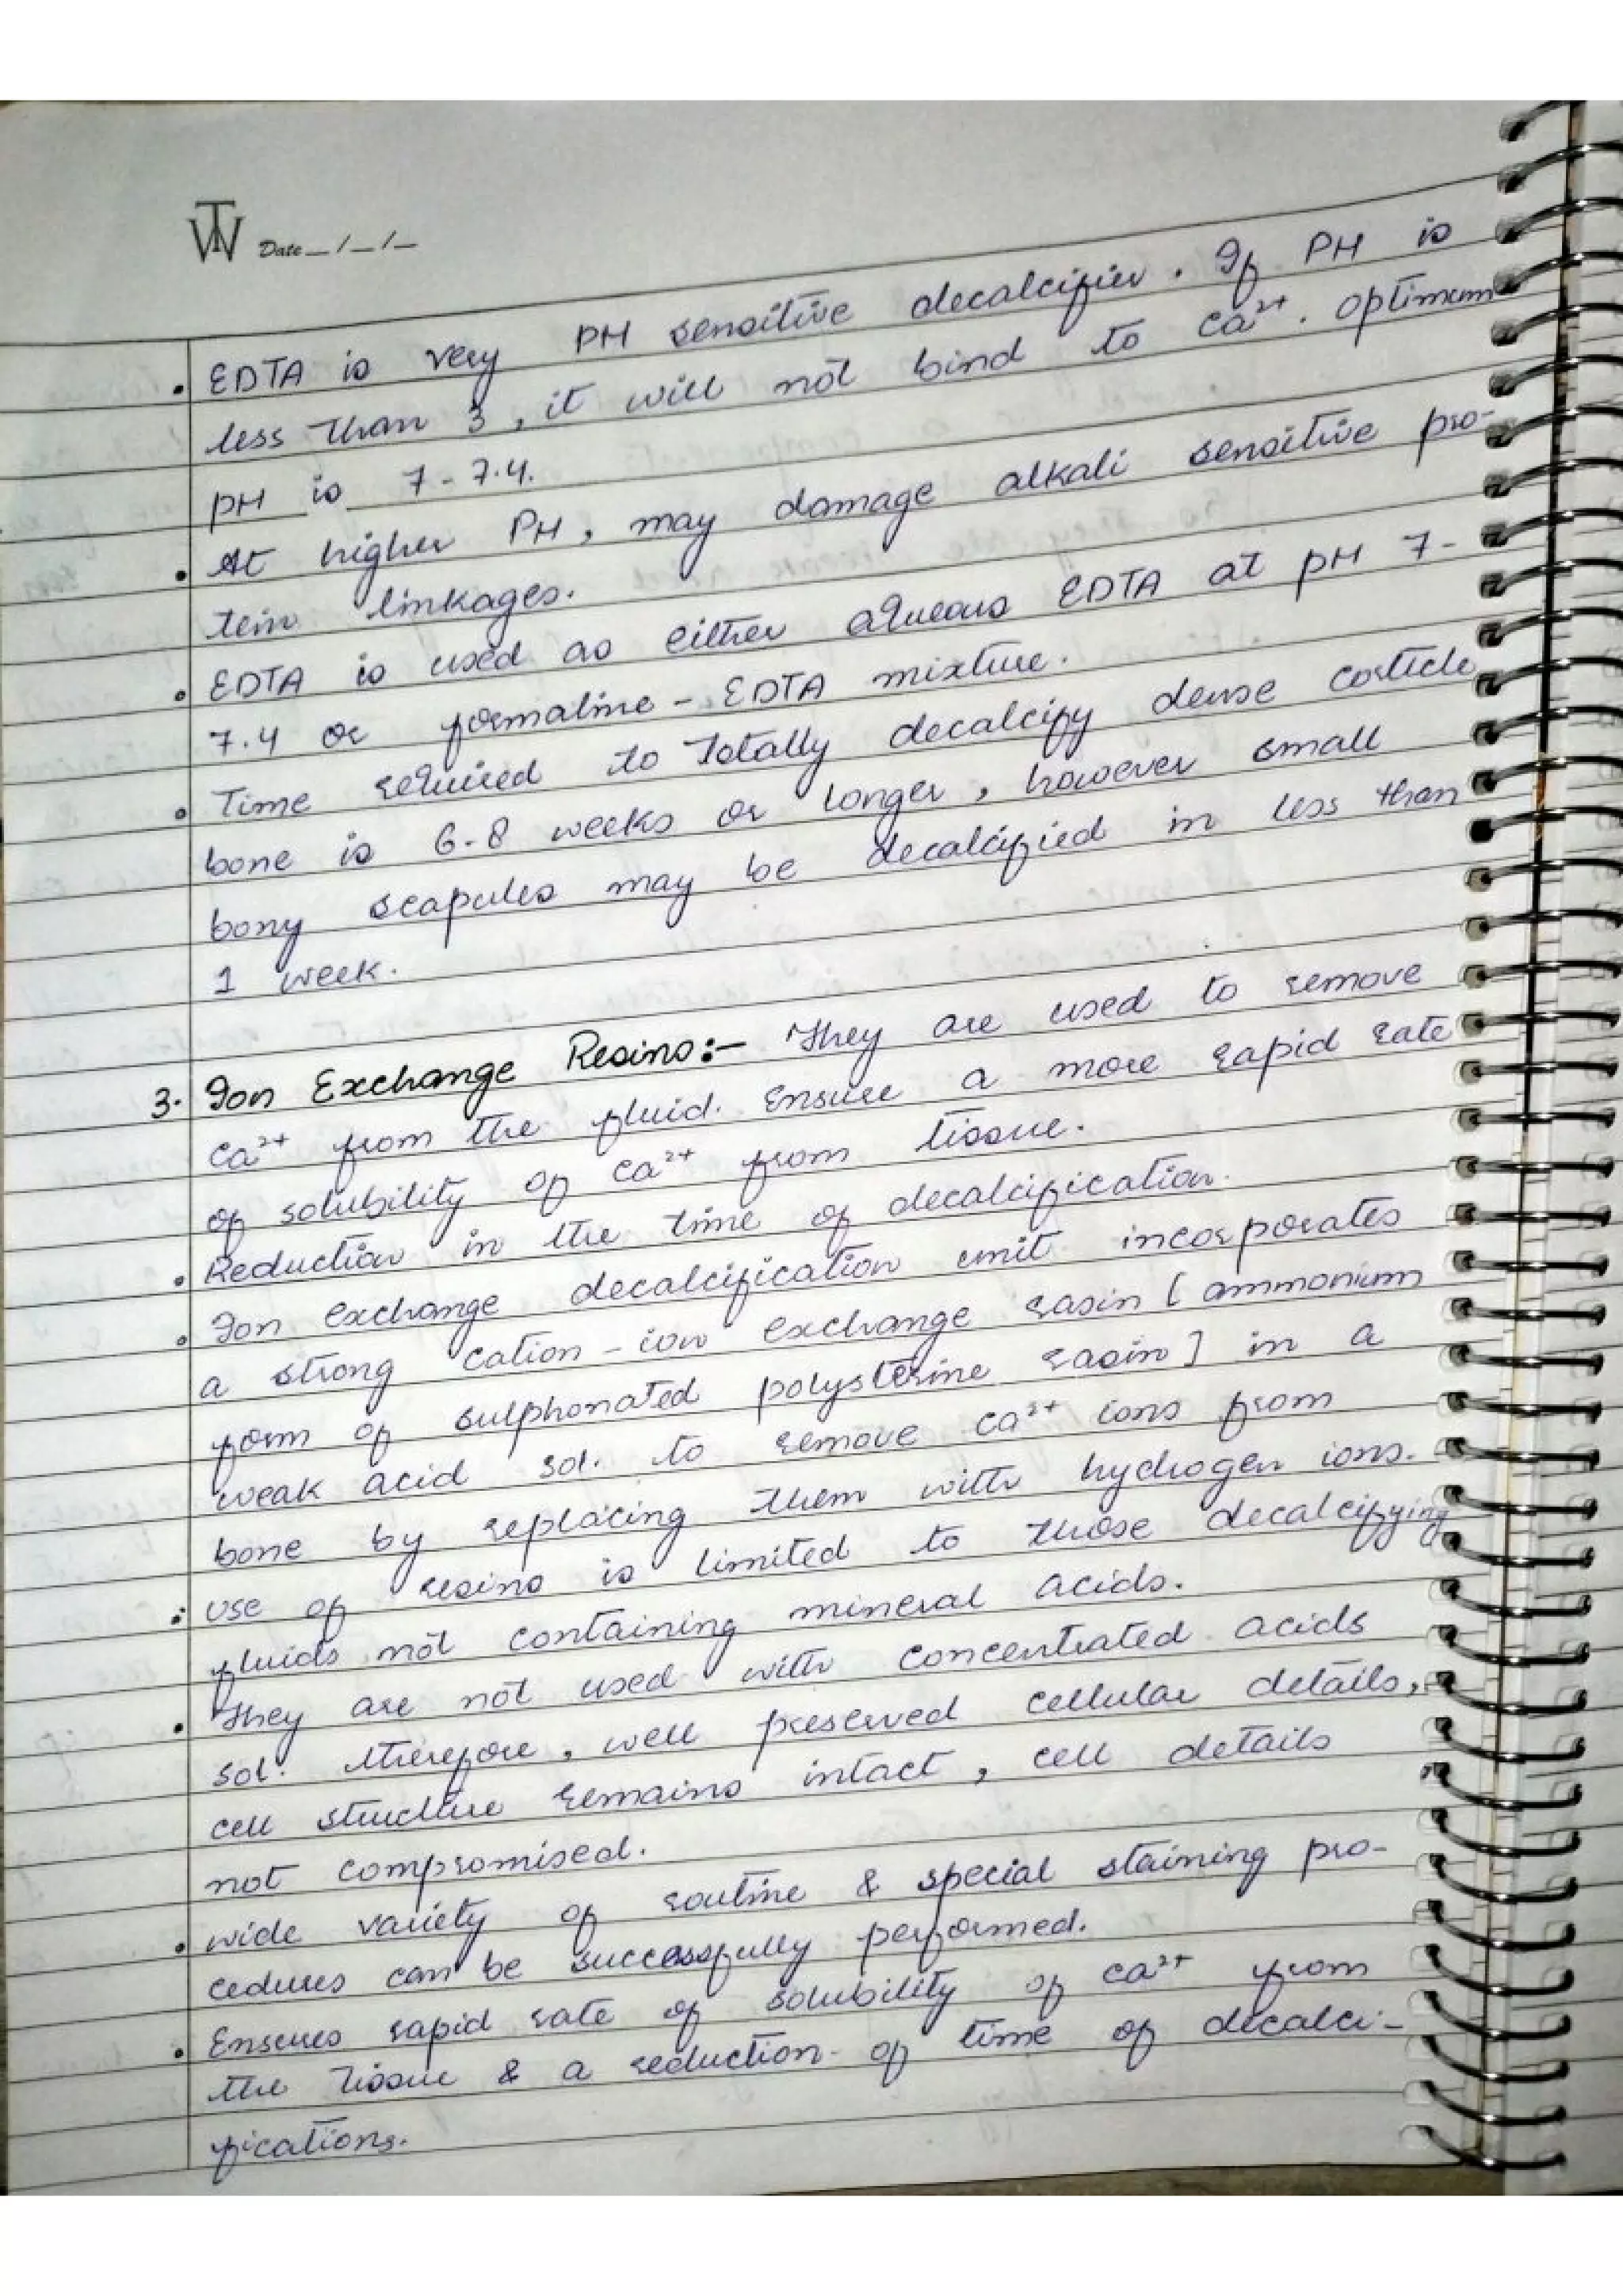 TW Date _/_/_
• EDTA is very PH sensitive decalcifier. If PH is
less than 3, it will not bind to Ca²⁺. optimum
pH is 7-7.4.
• At higher PH, may damage alkali sensitive pro-
tein linkages.
• EDTA is used as either aqueous EDTA at pH 7-
7.4 or formaline - EDTA mixture.
• Time required to totally decalcify dense corticle
bone is 6-8 weeks or longer, however small
bony scapules may be decalcified in less than
1 week.
3. Ion Exchange Resins:- They are used to remove
Ca²⁺ from the fluid. Ensure a more rapid rate
of solubility of Ca²⁺ from tissue.
• Reduction in the time of decalcification.
• Ion exchange decalcification unit incorporates
a strong cation-ion exchange rasin [ammonium
form of sulphonated polysterine rasin] in a
weak acid sol. to remove Ca²⁺ ions from
bone by replacing them with hydrogen ions.
• Use of resins is limited to those decalcifying
fluids not containing mineral acids.
• They are not used with concentrated acids
sol. therefore, well preserved cellular details,
cell structure remains intact, cell details
not compromised.
• wide variety of routine & special staining pro-
cedures can be successfully performed.
• Ensures rapid rate of solubility of Ca²⁺ from
the tissue & a reduction of time of decalci-
fications.